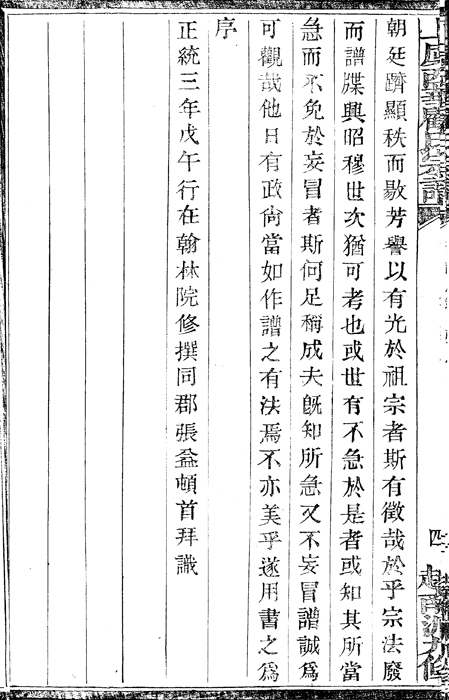 朝廷躋顯秩而敭芳譽以有光於祖宗者斯有徵哉於乎宗法廢
而譜牒興昭穆世次猶可考也或世有不急於是者或知其所當
急而不免於妄冒者斯何足稱成夫旣知所急又不妄冒譜誠爲
可觀哉他日有政尙當如作譜之有法焉不亦美乎遂用書之爲
序
正統三年戊午行在翰林院修撰同郡張益頓首拜識
四